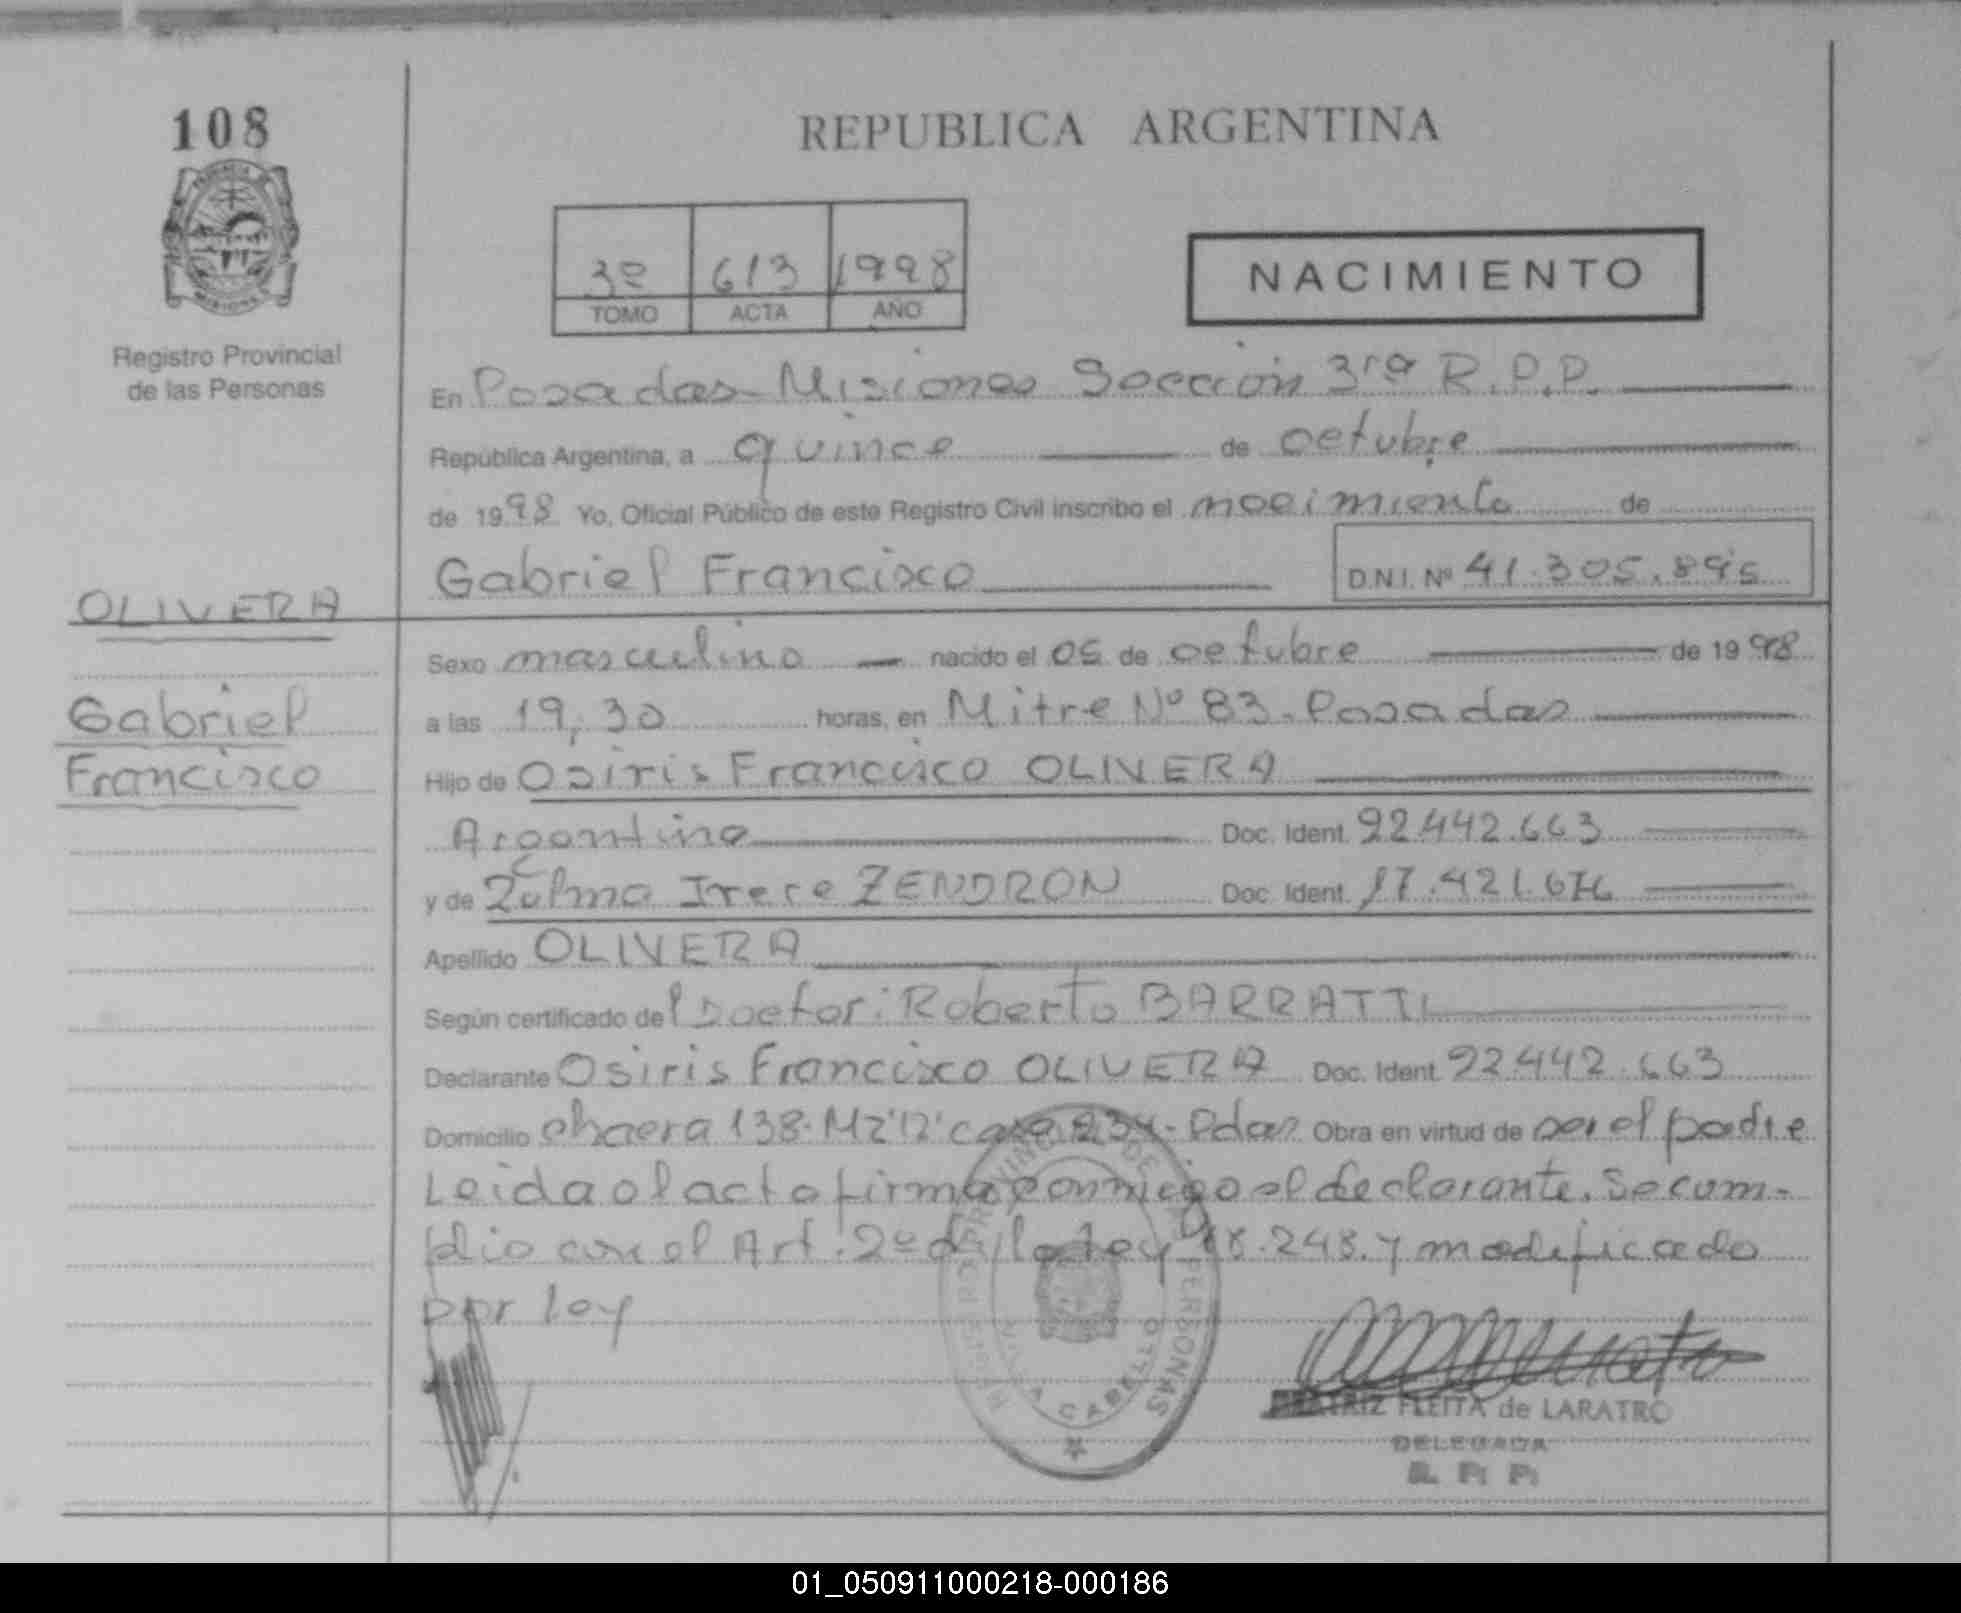 108
REPUBLICA ARGENTINA
3º 613 1998
TOMO ACTA AÑO
NACIMIENTO
Registro Provincial
de las Personas
En Posadas - Misiones Sección 3ra R.P.P.
República Argentina, a quince de octubre
de 1998 Yo, Oficial Público de este Registro Civil inscribo el nacimiento de
Gabriel Francisco D.N.I. Nº 41.305.895
OLIVERA
Gabriel
Francisco
Sexo masculino nacido el 05 de octubre de 1998
a las 19,30 horas, en Mitre Nº 83 - Posadas
Hijo de Osiris Francisco OLIVERA
Argentino Doc. Ident. 22.442.663
y de Zulma Irene ZENDRON Doc. Ident. 17.421.676
Apellido OLIVERA
Según certificado del Doctor: Roberto BARRATTI
Declarante Osiris Francisco OLIVERA Doc. Ident. 22.442.663
Domicilio chacra 138 - Mz casa 234 - Pdas Obra en virtud de ser el padre
Leida el acta firma conmigo el declarante. Se cum-
plio con el Art. 2º de la Ley 18.248. y modificado
por ley
REGISTRO PROVINCIAL DE LAS PERSONAS
VILLA CABELLO
BEATRIZ FLEITA de LARATRO
DELEGADA
R. P. P.
01_050911000218-000186